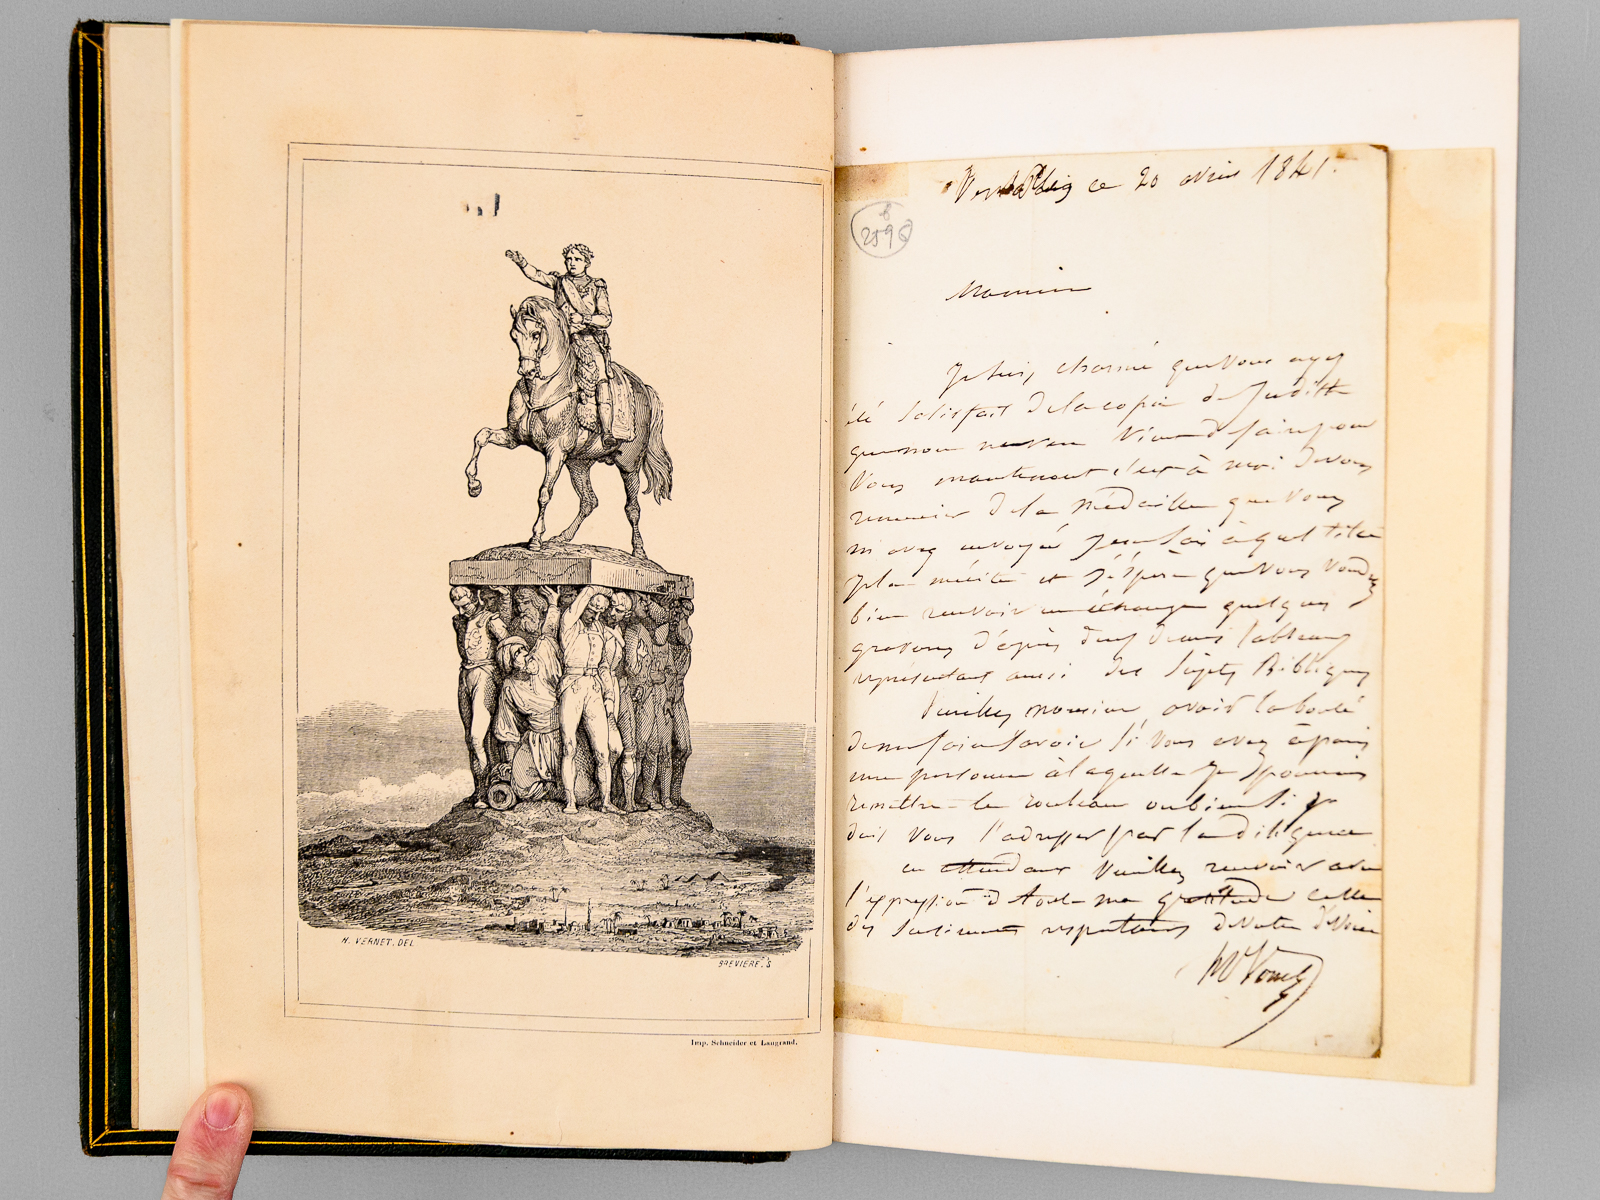 H. VERNET. DEL
BREVIERE. S
Imp. Schneider et Langrand.
ce 20 avril 1841.
2596
Monsieur
Je suis charmé que vous ayez
été satisfait de la copie de Judith
que mon neveu vient de faire pour
vous maintenant c'est à moi de vous
remercier de la médaille que vous
m'avez envoyée je ne sais à quel titre
je la mérite et j'espère que vous voudrez
bien recevoir en échange quelques
gravures d'après deux de mes tableaux
représentant aussi des sujets Bibliques
Veuillez monsieur avoir la bonté
de me faire savoir si vous avez à paris
une personne à laquelle je pourrais
remettre le rouleau ou bien si je
dois vous l'adresser par la diligence
en attendant Veuillez recevoir avec
l'expression de toute ma gratitude celle
des sentiments respectueux de votre dévoué
H Vernet